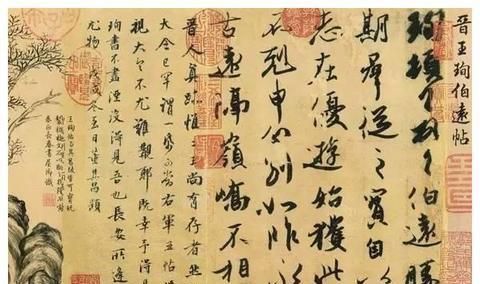 晉王珣伯遠帖
珣頓首頓首伯遠勝
期羣從之寶自
志在優遊始獲此
不剋申分別如昨永
古遠隔嶺嶠不相
晉人真跡惟二王尚有存者然
大令已罕謂一紙可當右軍五帖
視大令不尤難覯耶既幸予得見
珣書不盡湮沒得見吾也長安所逢
尤物戊戌冬至日董其昌題
春正長春書屋御識